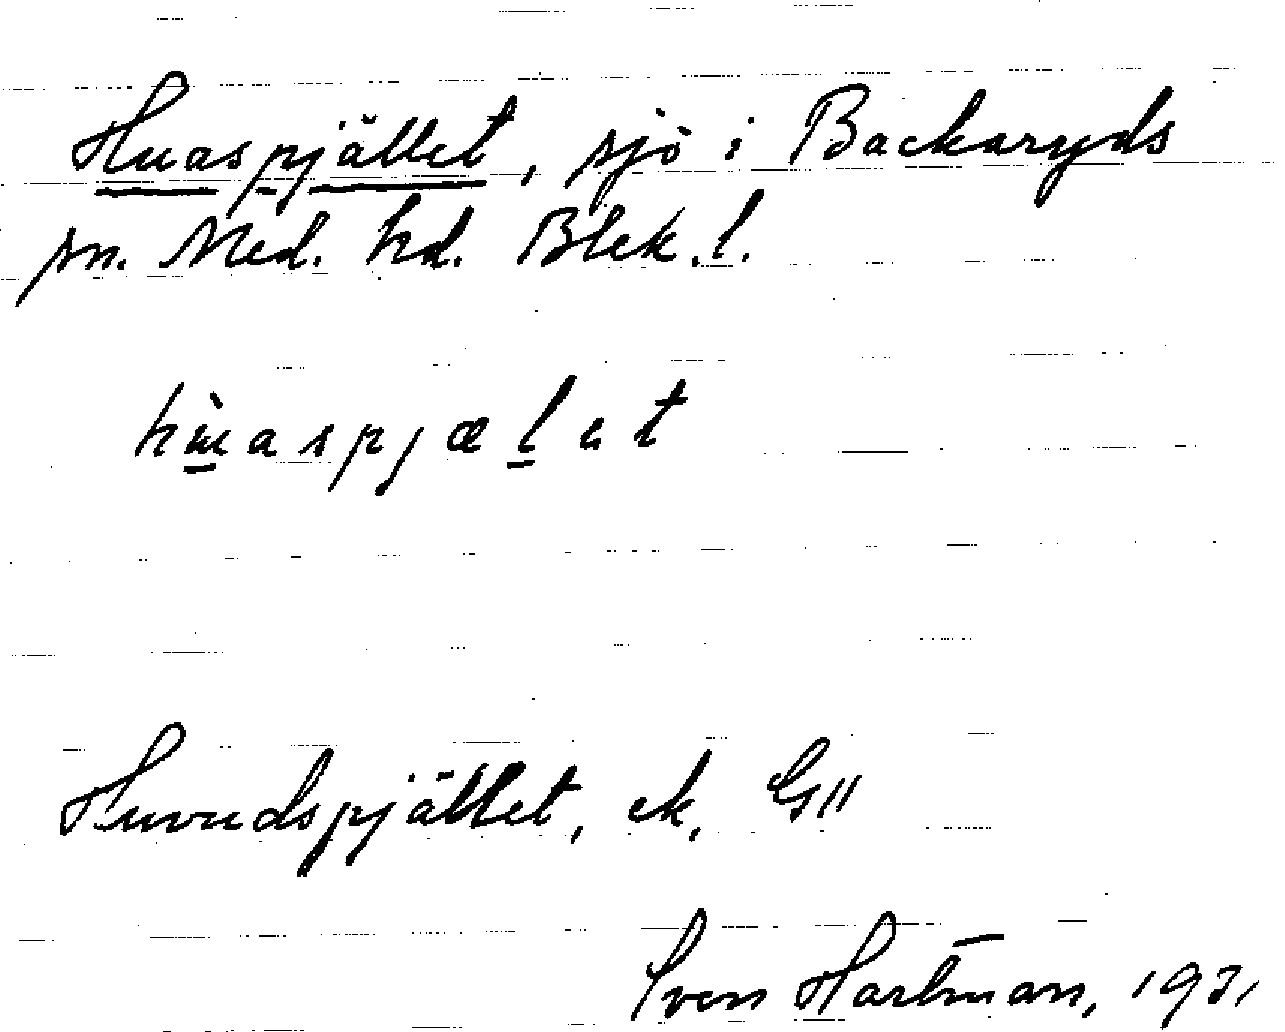 Huaspjället, sjö i Backaryds
sn. Med. hd. Blek. l.
hu̇aspjælet
Huvudspjället, ek. G11
Sven Hartman, 1931